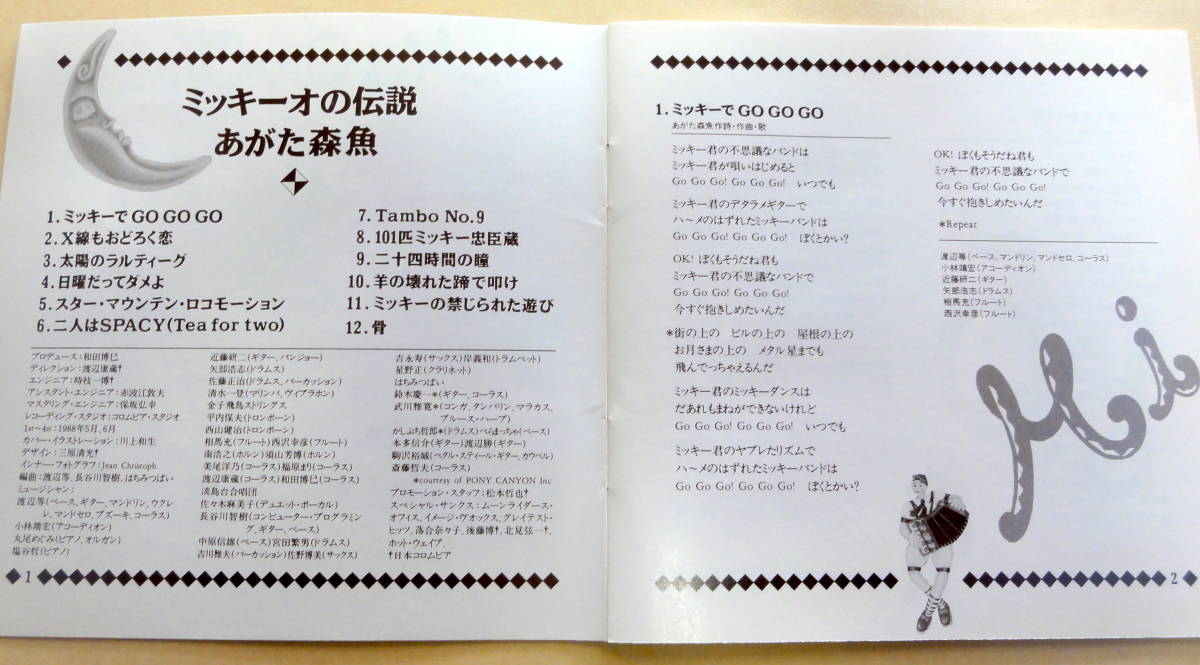 ミッキーオの伝説
あがた森魚
1.ミッキーでGO GO GO
2.X線もおどろく恋
3.太陽のラルティーグ
4.日曜だってダメよ
5.スター・マウンテン・ロコモーション
6.二人はSPACY(Tea for two)
7.Tambo No.9
8.101匹ミッキー忠臣蔵
9.二十四時間の瞳
10.羊の壊れた蹄で叩け
11.ミッキーの禁じられた遊び
12.骨
プロデュース:和田博巳
ディレクション:渡辺康蔵†
エンジニア:時枝一博†
アシスタント・エンジニア:赤波江敦夫
マスタリング・エンジニア:保坂弘幸
レコーディング・スタジオ:コロムビア・スタジオ
1st〜4st:1988年5月、6月
カバー・イラストレーション:川上和生
デザイン:三原清光†
インナー・フォトグラフ:Jean Christoph.
編曲:渡辺等、長谷川智樹、はちみつぱい
ミュージシャン:
渡辺等(ベース、ギター、マンドリン、ウクレ
レ、マンドセロ、ブズーキ、コーラス)
小林靖宏(アコーディオン)
丸尾めぐみ(ピアノ、オルガン)
塩谷哲(ピアノ)
近藤研二(ギター、バンジョー)
矢部浩志(ドラムス)
佐藤正治(ドラムス、パーカッション)
清水一登(マリンバ、ヴィブラホン)
金子飛鳥ストリングス
平内保夫(トロンボーン)
西山健治(トロンボーン)
相馬充(フルート)西沢幸彦(フルート)
南浩之(ホルン)須山芳博(ホルン)
美尾洋乃(コーラス)福原まり(コーラス)
渡辺康蔵(コーラス)和田博巳(コーラス)
淡島台合唱団
佐々木麻美子(デュエット・ボーカル)
長谷川智樹(コンピューター・プログラミン
グ、ギター、ベース)
中原信雄(ベース)宮田繁男(ドラムス)
吉川雅夫(パーカッション)佐野博美(サックス)
吉永寿(サックス)岸義和(トラムペット)
星野正(クラリネット)
はちみつぱい
鈴木慶一*(ギター、コーラス)
武川雅寛*(コンガ、タンバリン、マラカス、
ブルース・ハープ)
かしぶち哲郎*(ドラムス)べらまっちゃ(ベース)
本多信介(ギター)渡辺勝(ギター)
駒沢裕城(ペタル・スティール・ギター、カウベル)
斎藤哲夫(コーラス)
*courtesy of PONY CANYON Inc
プロモーション・スタッフ:松本哲也†
スペシャル・サンクス:ムーンライダース・
オフィス、イメージ・ヴオックス、グレイテスト・
ヒッツ、落合奈々子、後藤博†、北見弦一†、
ホット・ウェイブ、
†日本コロムビア
1
1.ミッキーでGO GO GO
あがた森魚作詩・作曲・歌
ミッキー君の不思議なバンドは
ミッキー君が唄いはじめると
Go Go Go! Go Go Go! いつでも
ミッキー君のデタラメギターで
ハ〜メのはずれたミッキーバンドは
Go Go Go! Go Go Go! ぼくとかい?
OK! ぼくもそうだね君も
ミッキー君の不思議なバンドで
Go Go Go! Go Go Go!
今すぐ抱きしめたいんだ
*街の上の ビルの上の 屋根の上の
お月さまの上の メタル星までも
飛んでっちゃえるんだ
ミッキー君のミッキーダンスは
だあれもまねができないけれど
Go Go Go! Go Go Go! いつでも
ミッキー君のヤブレたリズムで
ハ〜メのはずれたミッキーバンドは
Go Go Go! Go Go Go! ぼくとかい?
OK! ぼくもそうだね君も
ミッキー君の不思議なバンドで
Go Go Go! Go Go Go!
今すぐ抱きしめたいんだ
*Repeat
渡辺等(ベース、マンドリン、マンドセロ、コーラス)
小林靖宏(アコーディオン)
近藤研二(ギター)
矢部浩志(ドラムス)
相馬充(フルート)
西沢幸彦(フルート)
Mi
2